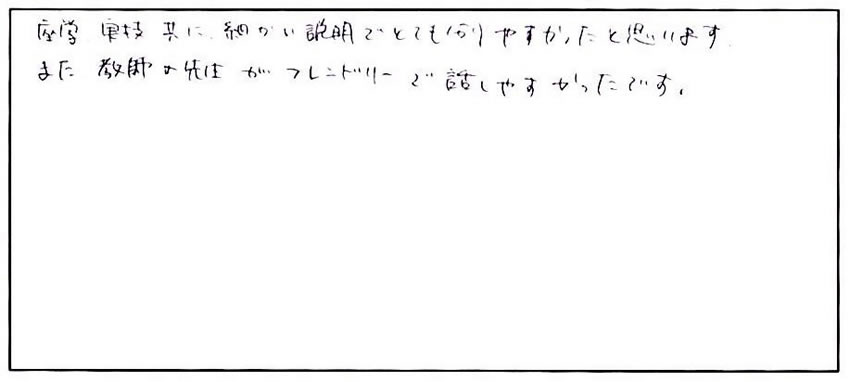 座学 実技 共に 細かい説明でとても分かりやすかったと思います
また 教師の先生 がフレンドリーで話しやすかったです。